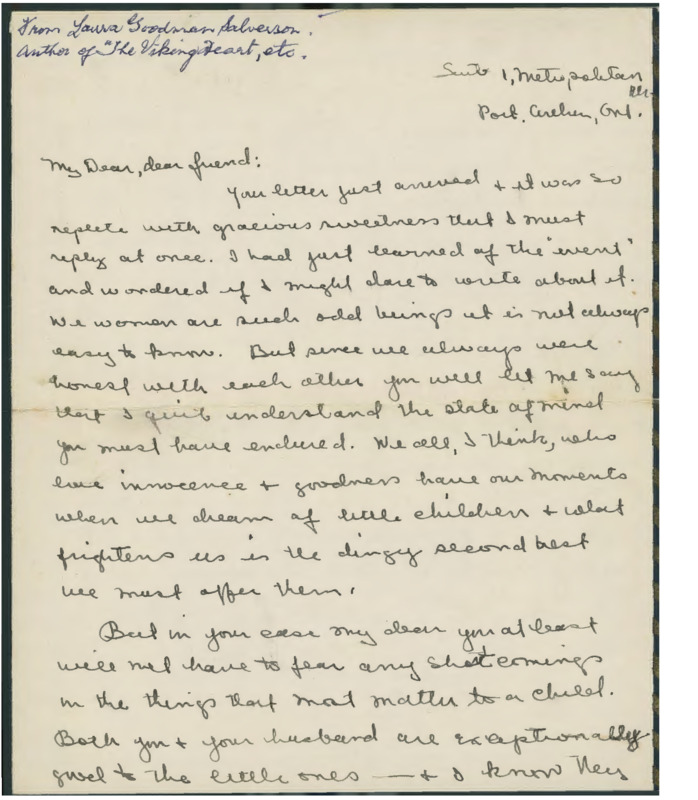 From Laura Goodman Salverson.
Author of "The Viking Heart, etc.
Suite 1, Metropolitan
Port. Arthur, Ont.
My Dear, dear friend:
Your letter just arrived + it was so
replete with gracious sweetness that I must
reply at once. I had just learned of the "event"
and wondered if I might dare to write about it.
We women are such odd beings it is not always
easy to know. But since we always were
honest with each other you will let me say
that I quite understand the state of mind
you must have endured. We all, I think, who
love innocence + goodness have our moments
when we dream of little children + what
frightens us is the dingy second best
we must offer them.
But in your case my dear you at least
will not have to fear any shortcomings
in the things that most matter to a child.
Both you + your husband are exceptionally
good to the little ones — + I know they